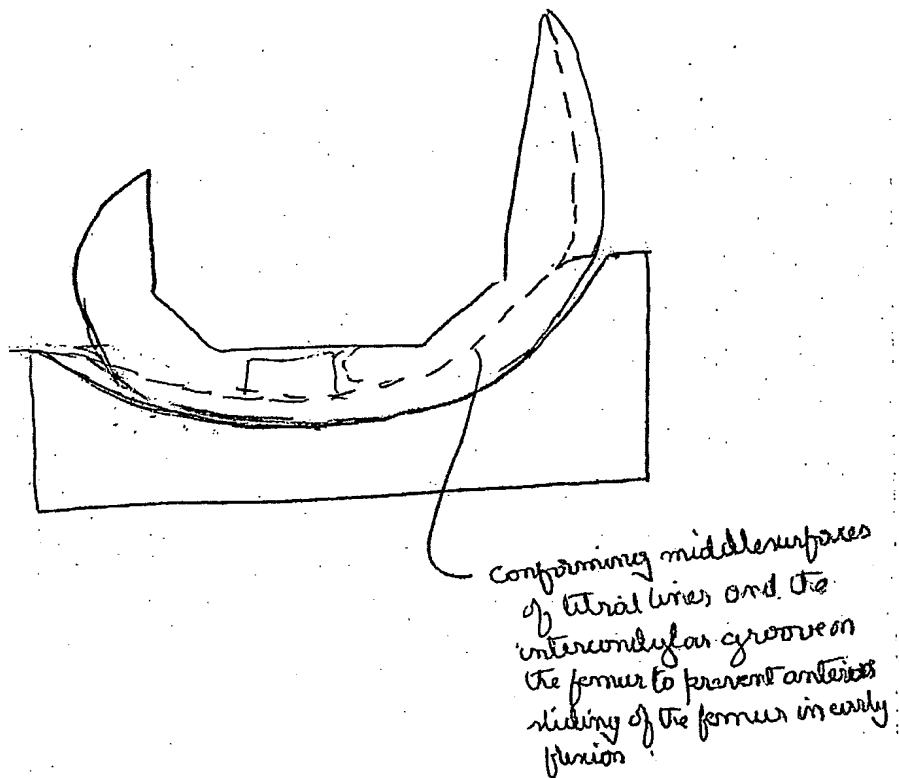 conforming middle surfaces
of titral lines and the
intercondylar groove on
the femur to prevent anterior
sliding of the femur in early
flexion.